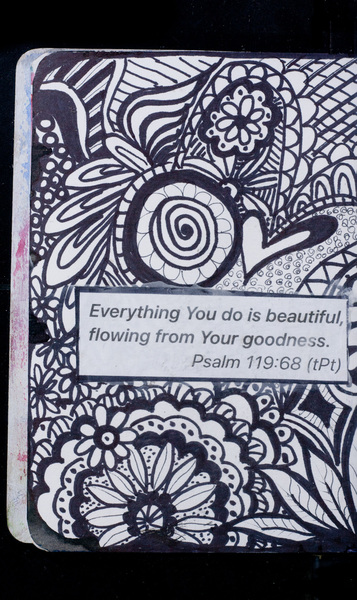 Everything You do is beautiful,
flowing from Your goodness.
Psalm 119:68 (tPt)